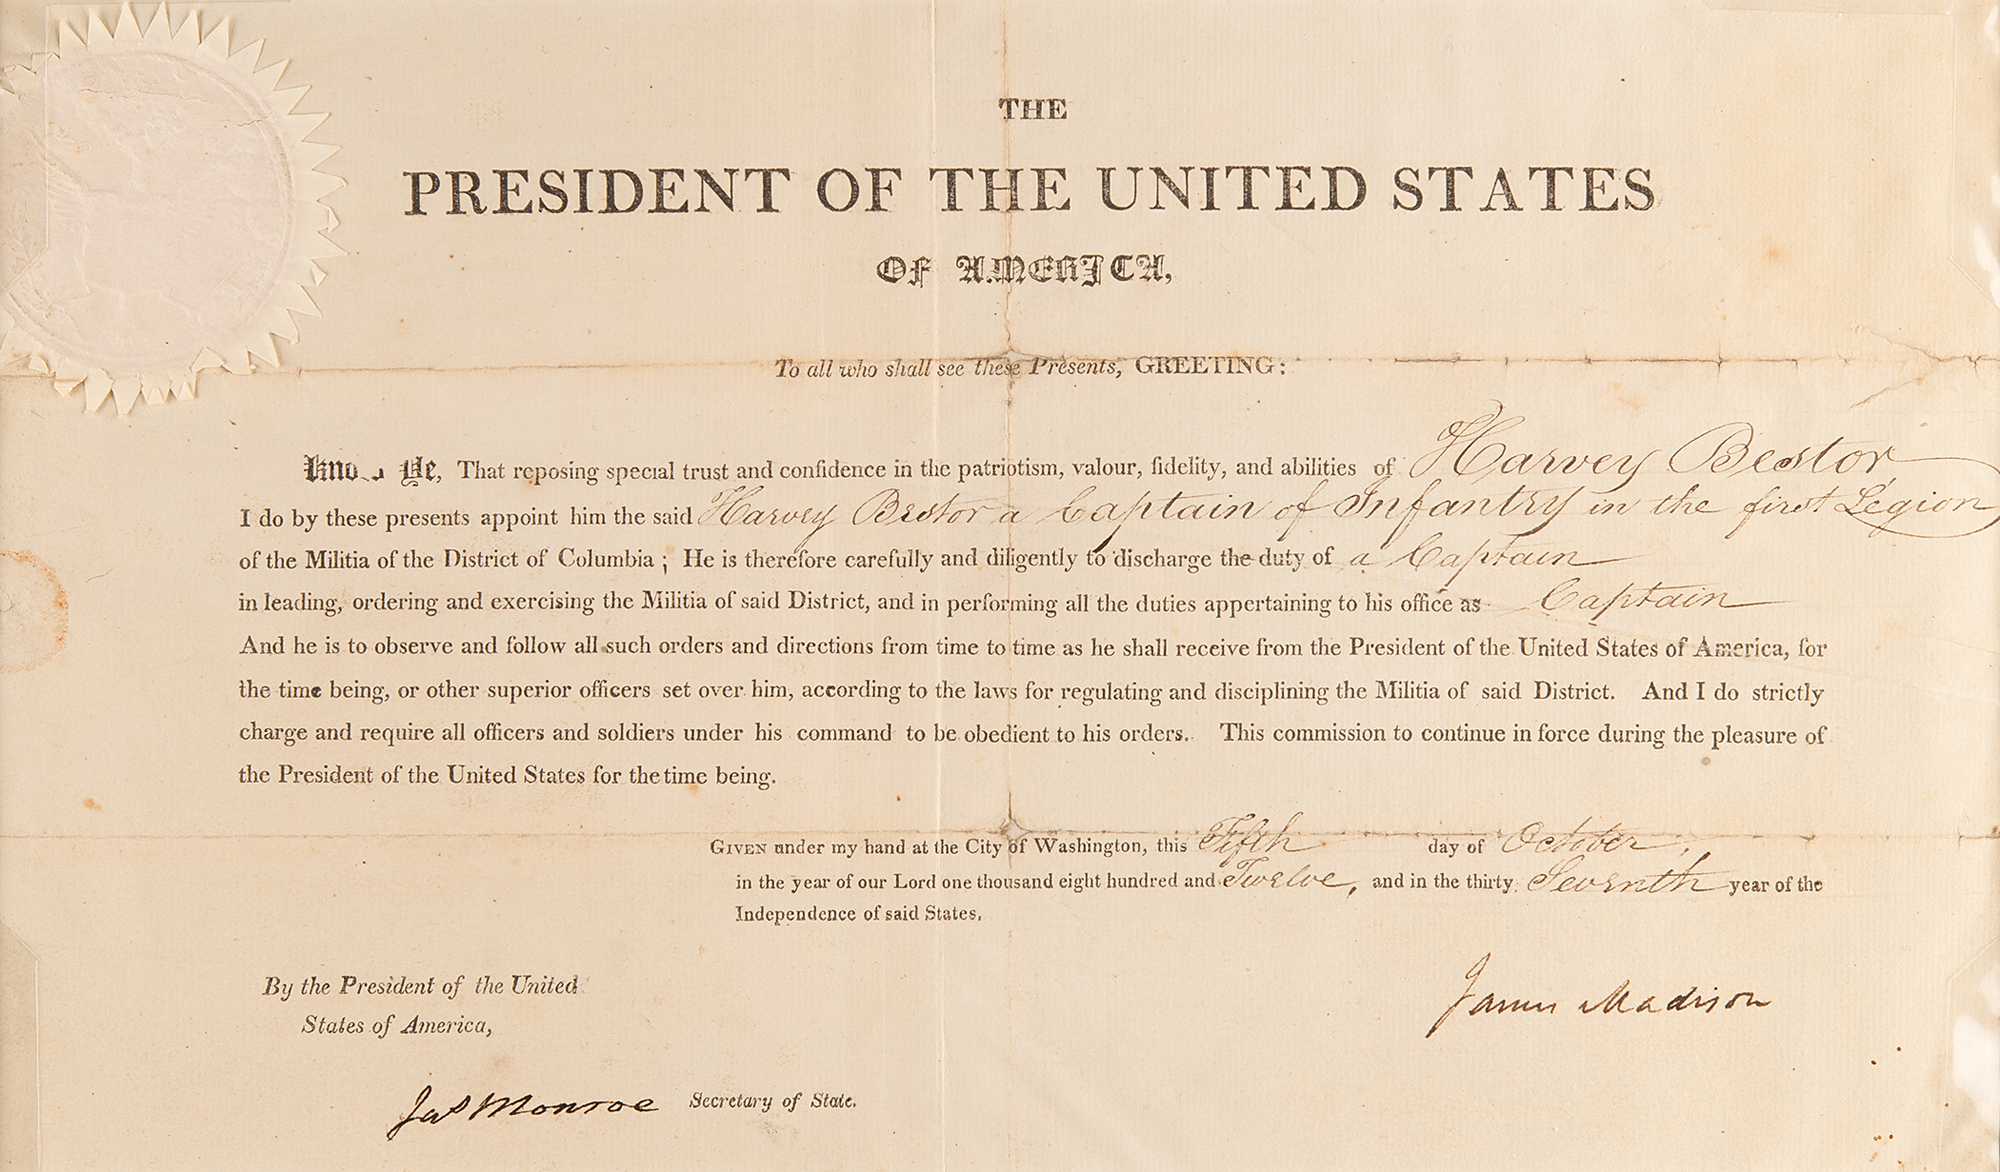 THE
PRESIDENT OF THE UNITED STATES
OF AMERICA,
To all who shall see these Presents, GREETING:
Know Ye, That reposing special trust and confidence in the patriotism, valour, fidelity, and abilities of Harvey Bestor
I do by these presents appoint him the said Harvey Bestor a Captain of Infantry in the first Legion
of the Militia of the District of Columbia; He is therefore carefully and diligently to discharge the duty of a Captain
in leading, ordering and exercising the Militia of said District, and in performing all the duties appertaining to his office as Captain
And he is to observe and follow all such orders and directions from time to time as he shall receive from the President of the United States of America, for
the time being, or other superior officers set over him, according to the laws for regulating and disciplining the Militia of said District. And I do strictly
charge and require all officers and soldiers under his command to be obedient to his orders. This commission to continue in force during the pleasure of
the President of the United States for the time being.
GIVEN under my hand at the City of Washington, this Fifth day of October,
in the year of our Lord one thousand eight hundred and Twelve, and in the thirty Seventh year of the
Independence of said States.
By the President of the United
States of America,
James Madison
Jas Monroe Secretary of State.